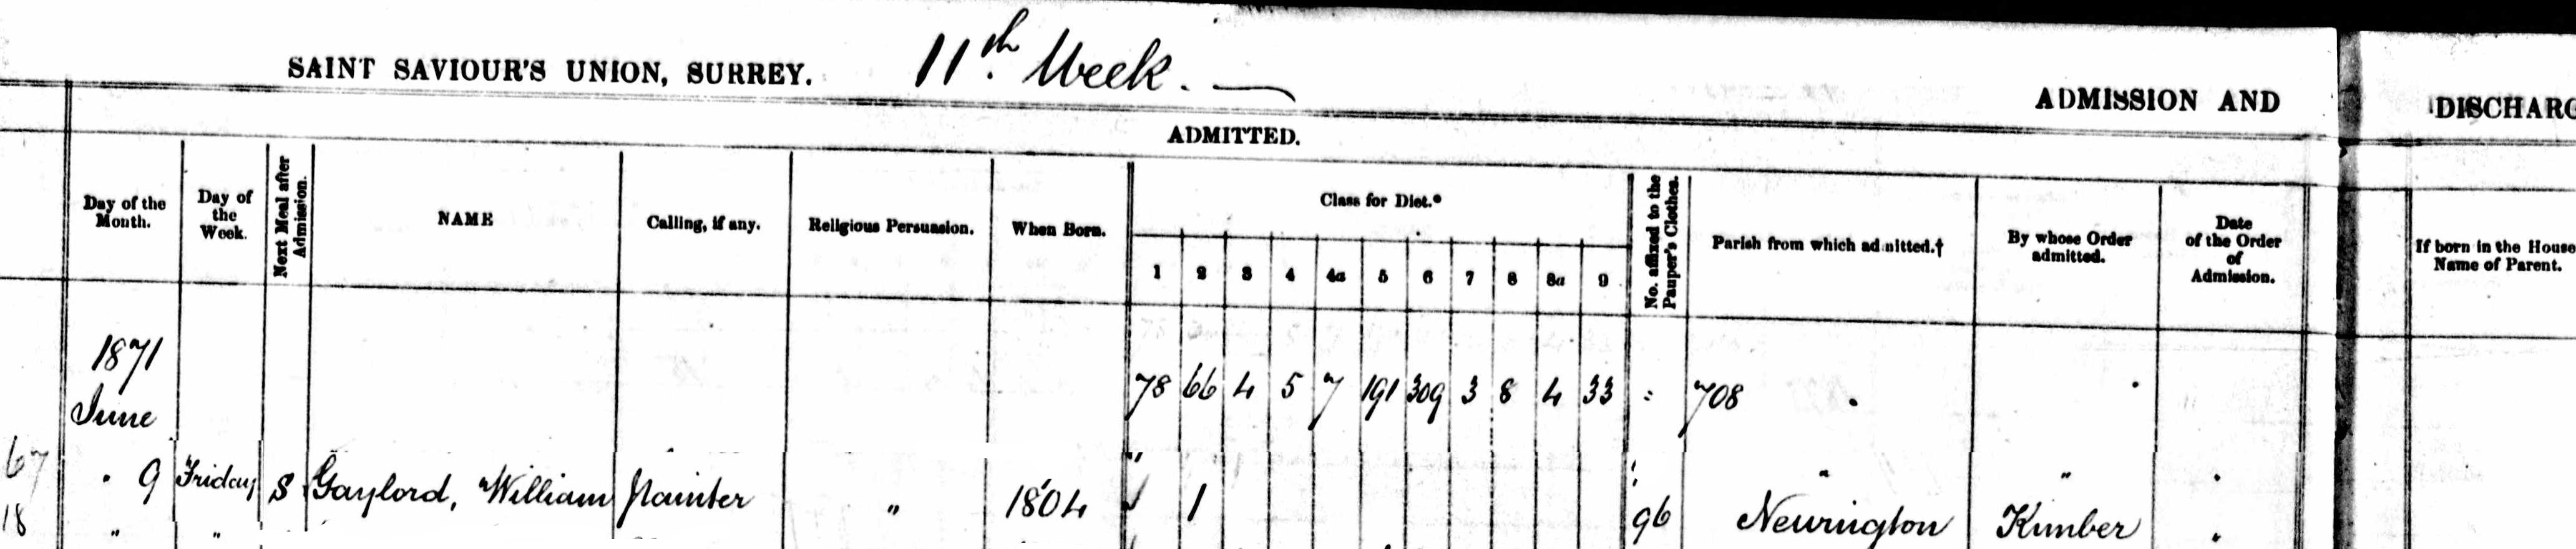 SAINT SAVIOUR'S UNION, SURREY. 11th Week. —
ADMISSION AND
DISCHARG
ADMITTED.
Day of the Month.
Day of the Week.
Next Meal after Admission.
NAME
Calling, if any.
Religious Persuasion.
When Born.
Class for Diet.*
1 2 3 4 4a 5 6 7 8 8a 9
No. affixed to the Pauper's Clothes.
Parish from which admitted.†
By whose Order admitted.
Date of the Order of Admission.
If born in the House Name of Parent.
1871
June
78 66 4 5 7 191 309 3 8 4 33 : 708
67 " 9 Friday S Gaylord, William Painter " 1804 1 96 Newington Kimber "
18 " "